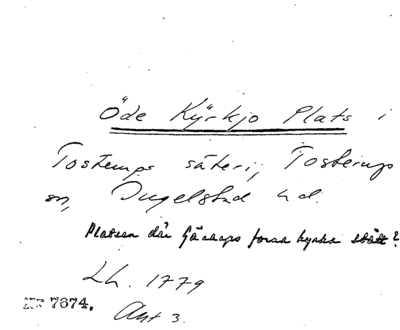 Öde Kÿrkjo Plats i
Tosterups säteri, Tosterups
sn, Ingelstad hd.
Platsen där Gärarps forna kyrka stått?
Lh. 1779
7674. Akt 3.